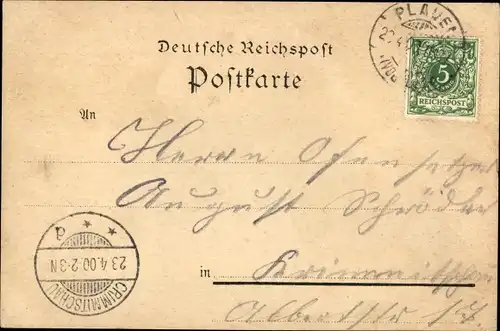 PLAUEN
5
REICHSPOST
Deutsche Reichspost
Postkarte
An
Herrn Ofensetzer
August Schröder
in Krimmitschau
Albertstr.
CRIMMITSCHAU
23.4.00.2-3N
* * d